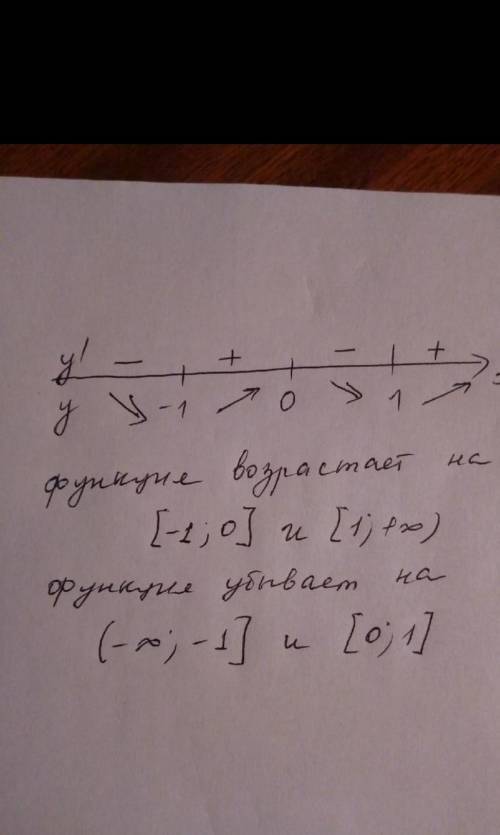 y' − + − +
y ↘ -1 ↗ 0 ↘ 1 ↗
функция возрастает на
[-1; 0] и [1; +∞)
функция убывает на
(-∞; -1] и [0; 1]